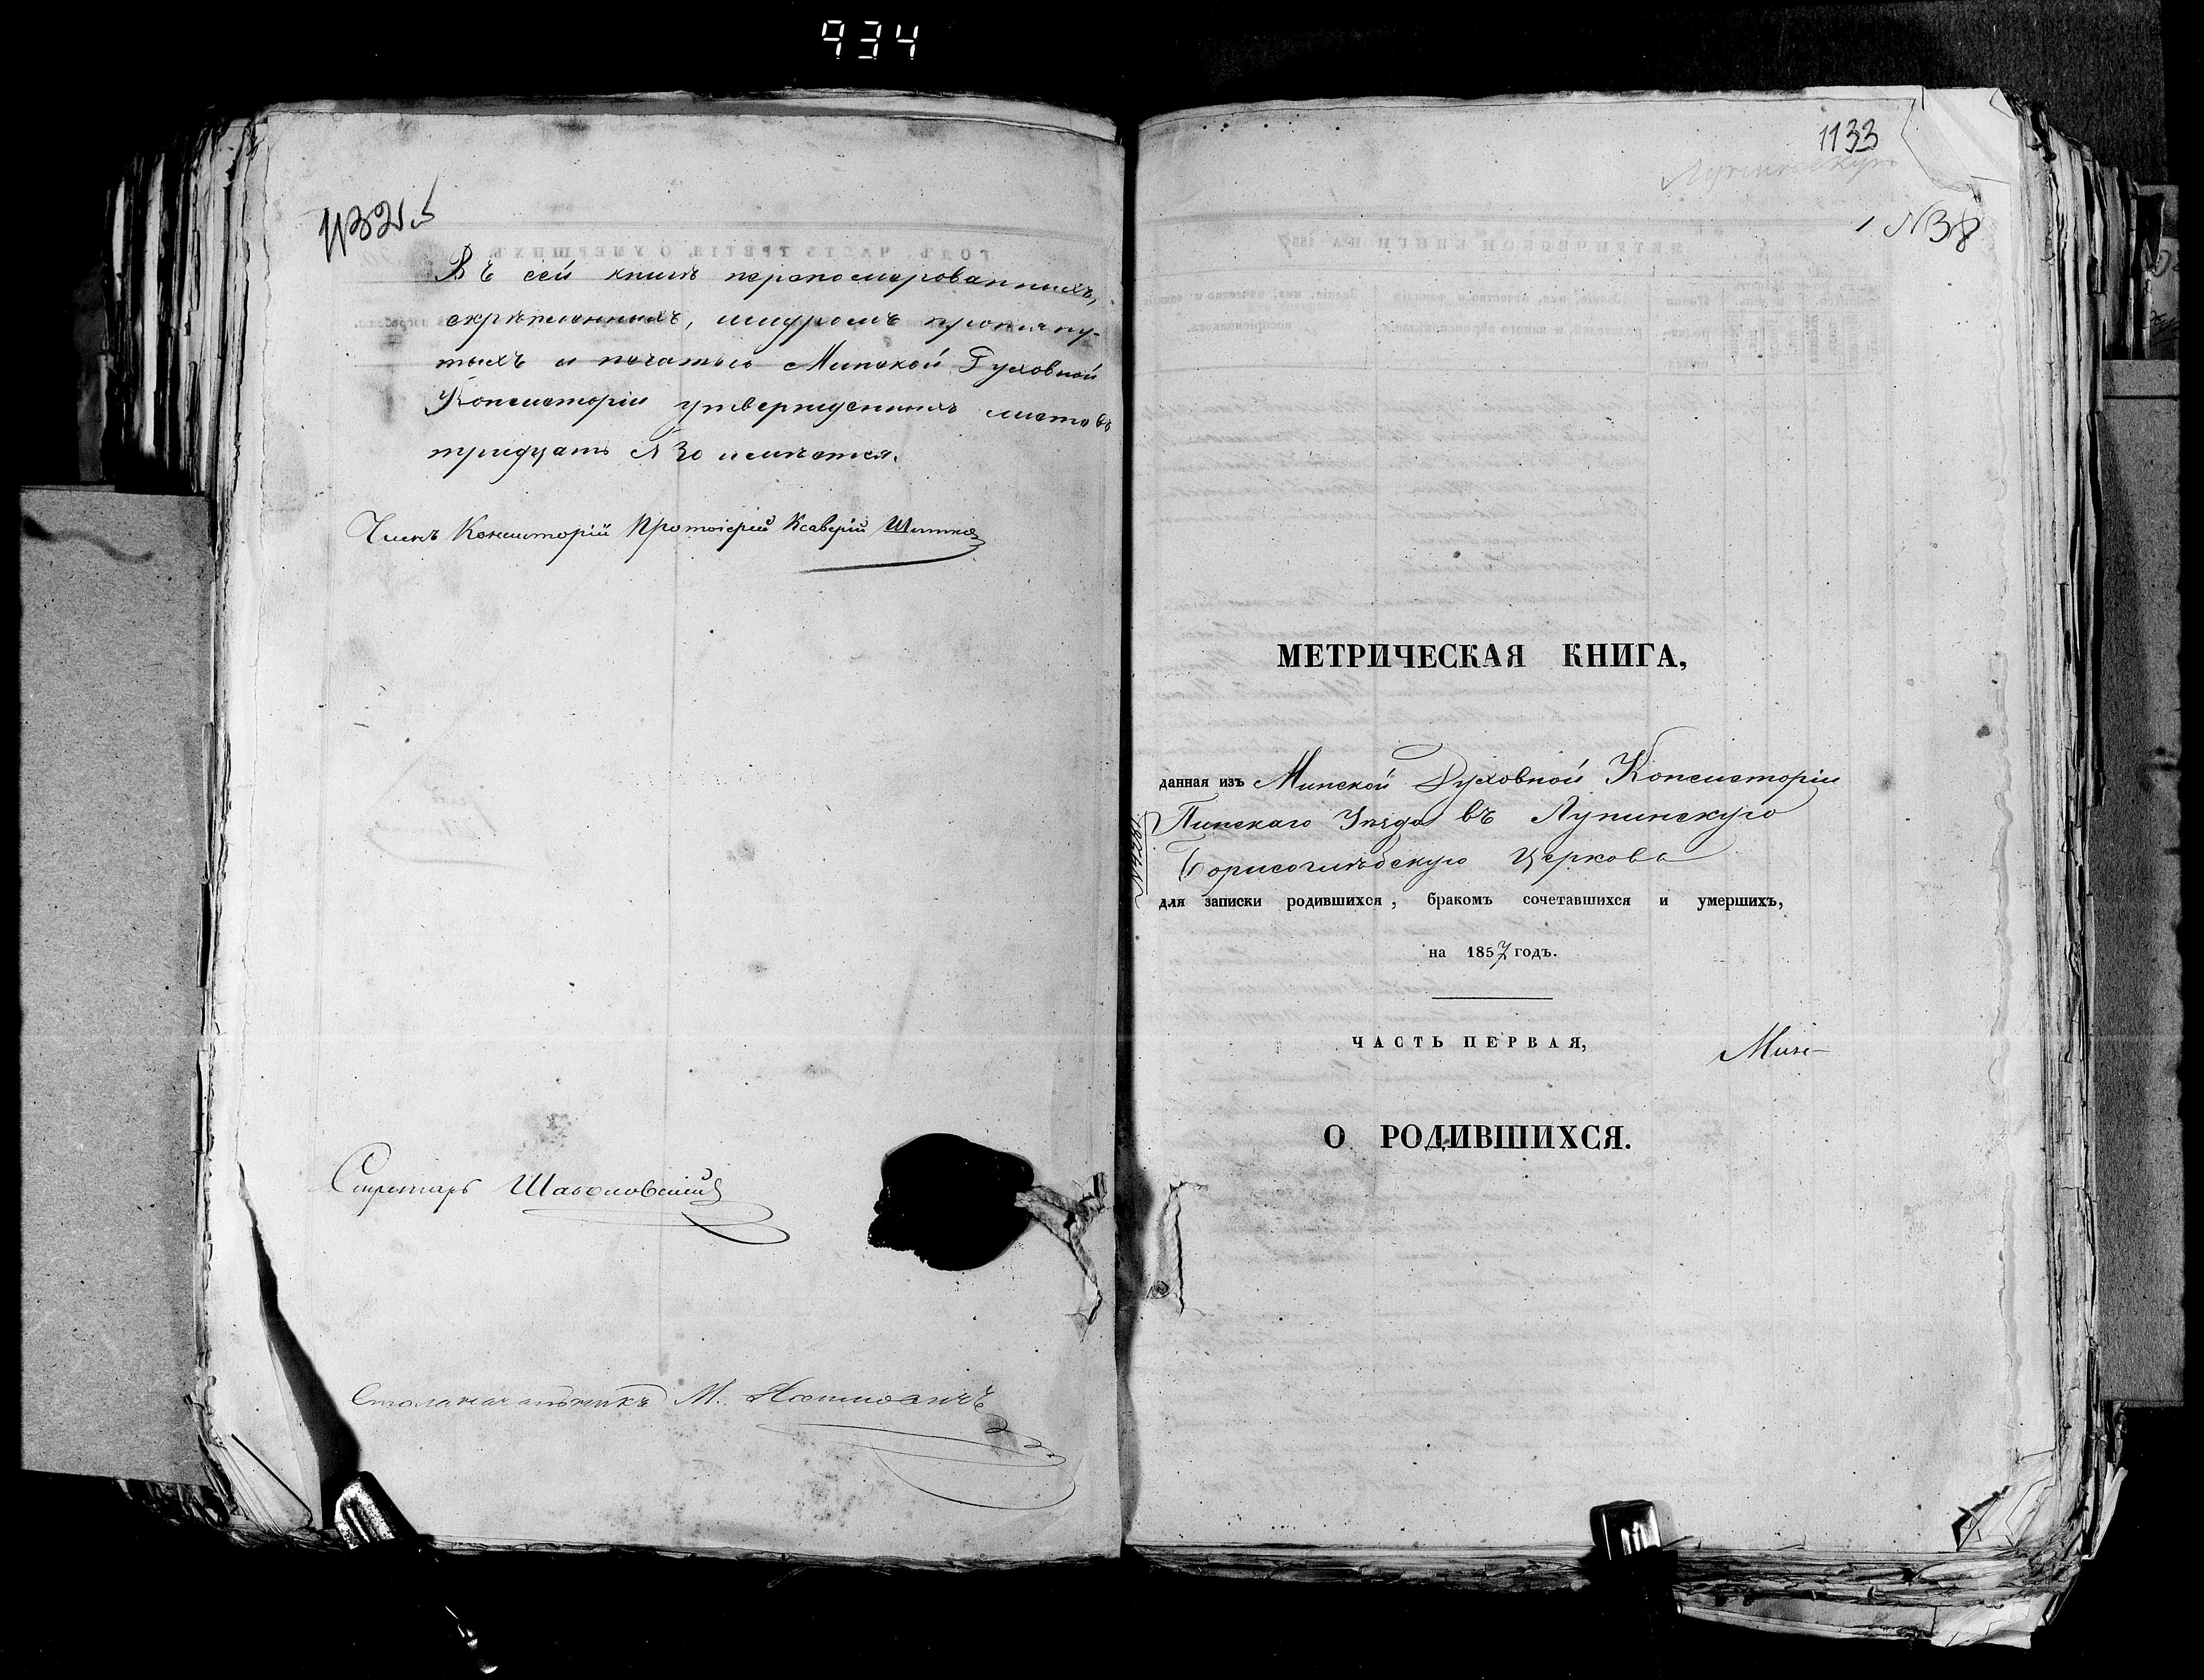 934
1132об
Въ сей книгѣ перономерованныхъ,
скрѣпленныхъ, шнуромъ протяну-
тыхъ и печатью Минской Духовной
Консисторіи утвержденныхъ листовъ
тридцать N 30 имѣется.
Членъ Консисторіи Протоіерей Ксаверій
Секретарь
Столоначальникъ М.
1133
Лунинскую
1 N38
МЕТРИЧЕСКАЯ КНИГА,
данная изъ Минской Духовной Консисторіи
Пинскаго Уѣзда въ Лунинскую
Борисоглѣбскую Церковь
для записки родившихся, бракомъ сочетавшихся и умершихъ,
на 1857 годъ.
ЧАСТЬ ПЕРВАЯ,
Мин-
О РОДИВШИХСЯ.